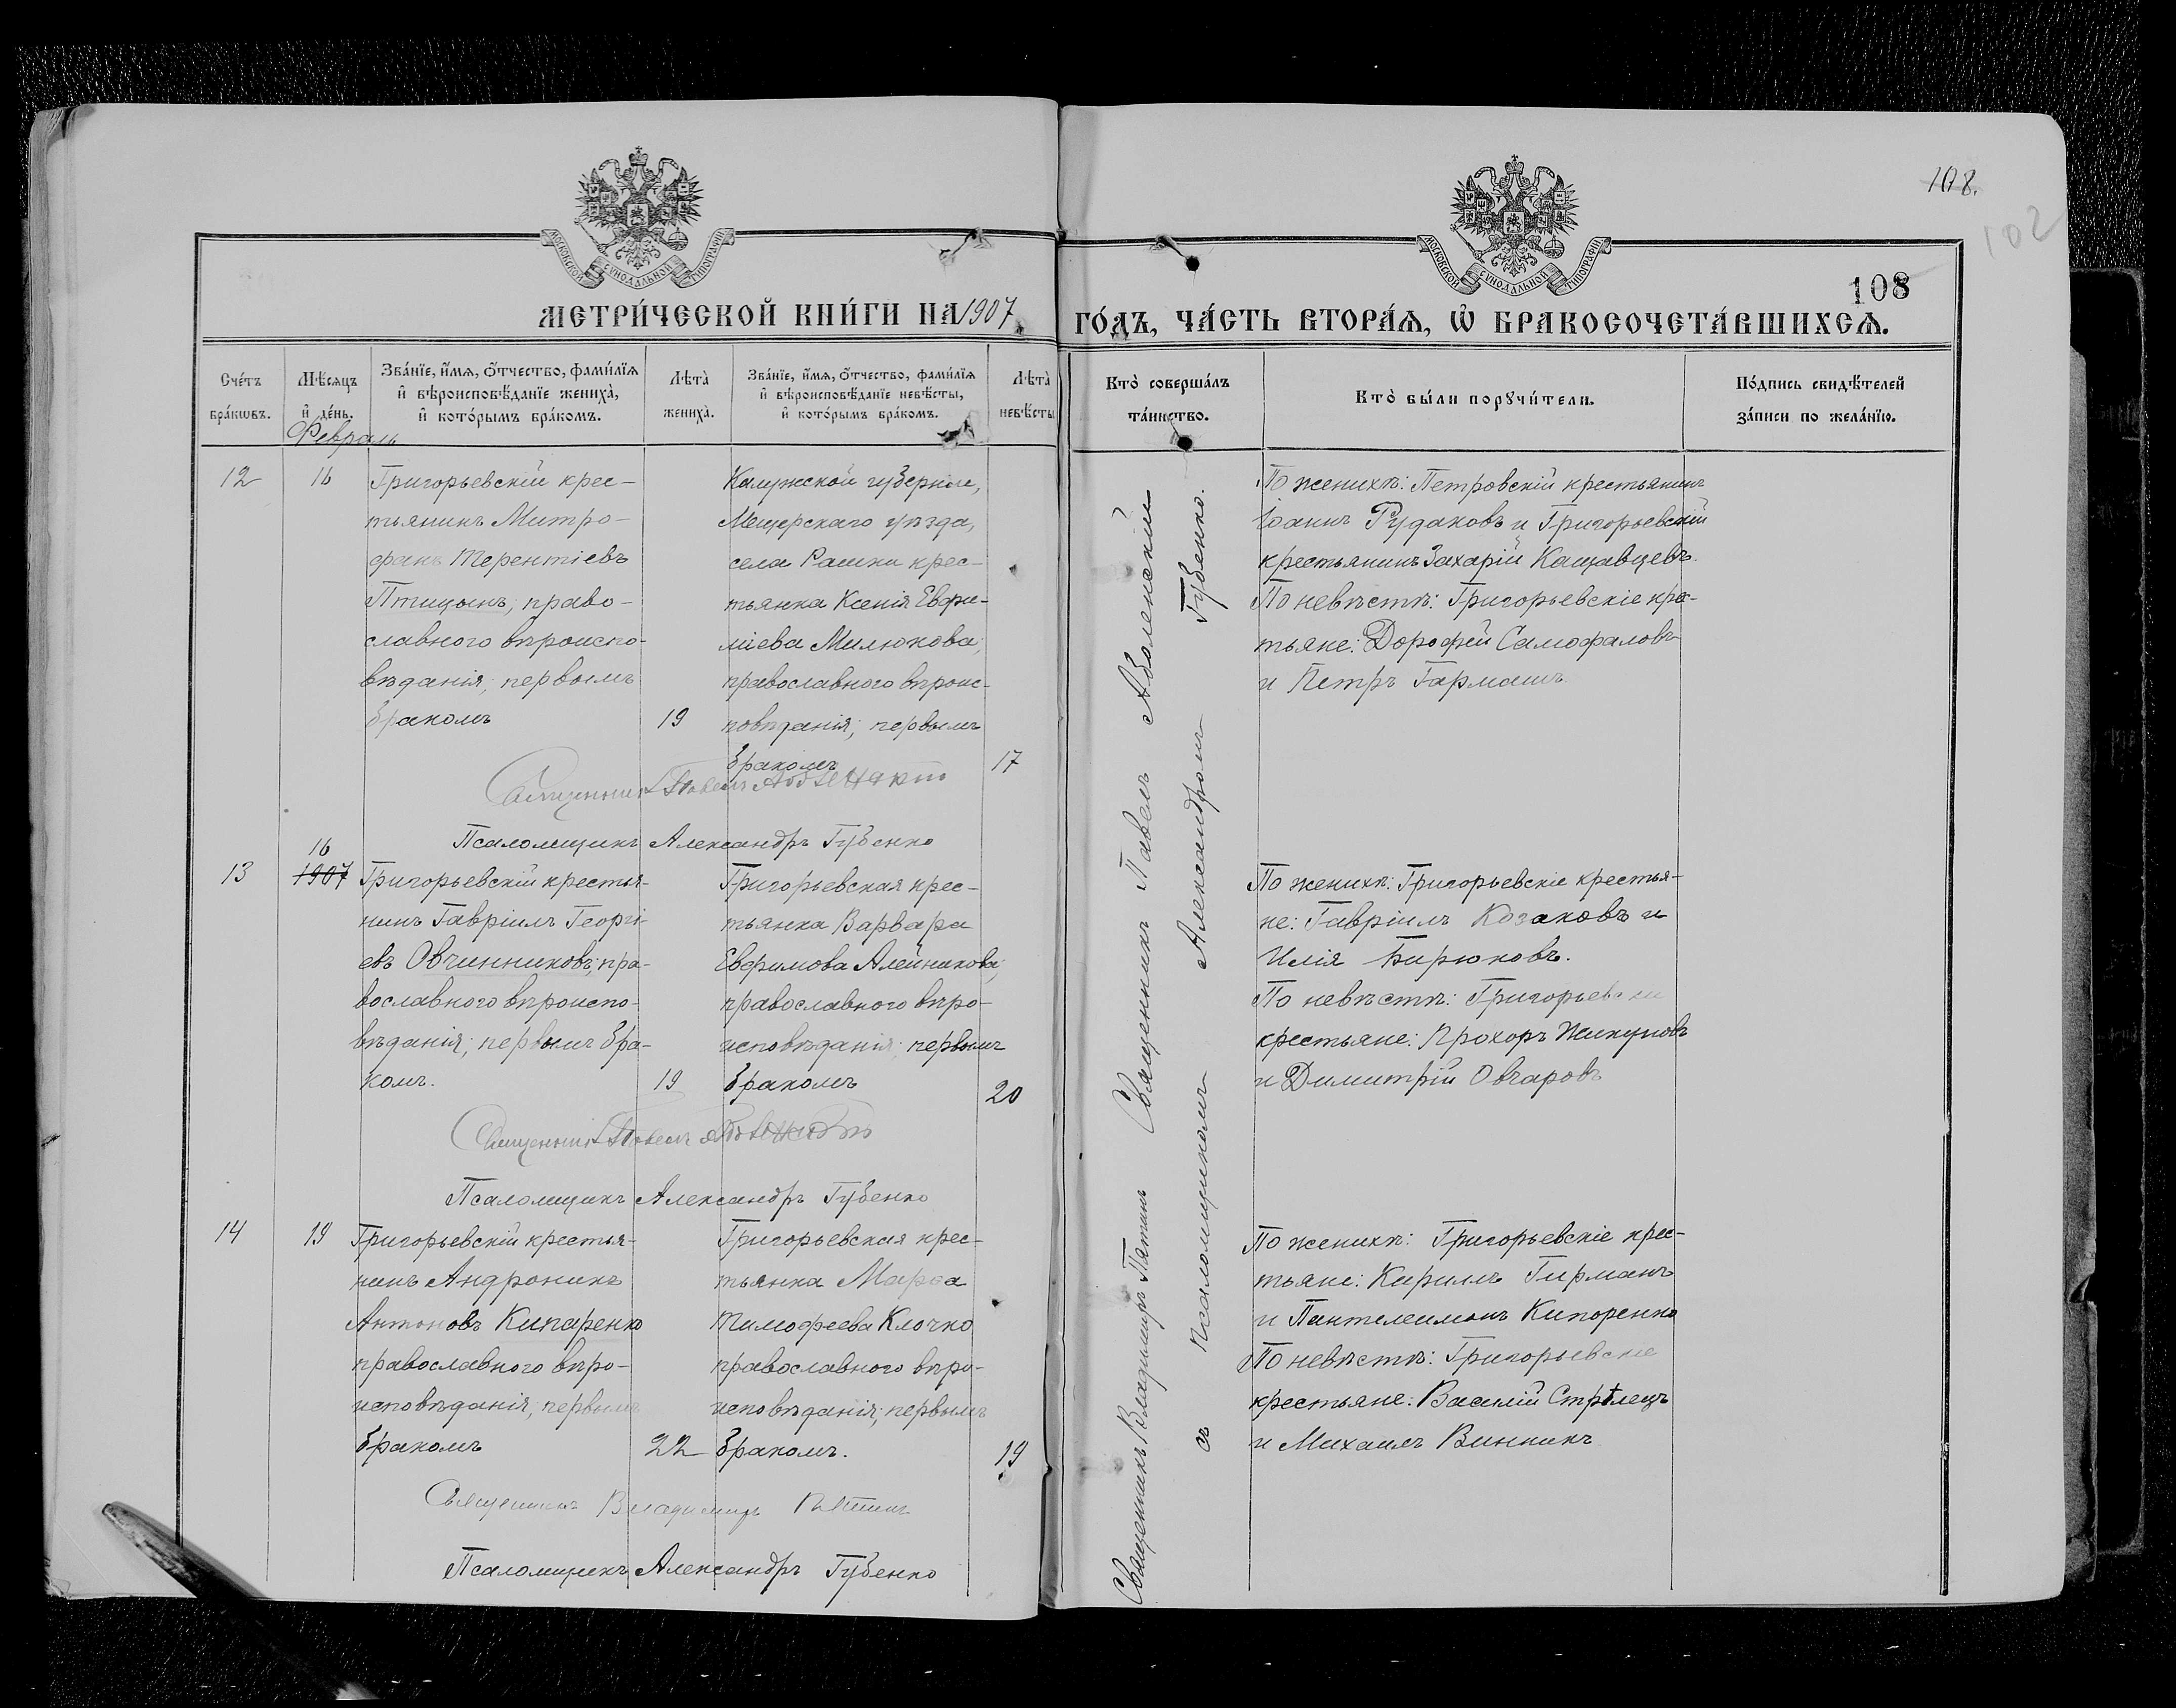 108.
102
108
МОСКОВСКОЙ СѴНОДАЛЬНОЙ ТИПОГРАФІИ
МОСКОВСКОЙ СѴНОДАЛЬНОЙ ТИПОГРАФІИ
МЕТРИ́ЧЕСКОЙ КНИ́ГИ НА 1907
ГО́ДЪ, ЧА́СТЬ ВТОРА́Ѧ, Ѽ БРАКОСОЧЕТА́ВШИХСѦ.
Сче́тъ
бра́кѡвъ.
Мѣ́сяцъ
и҆ де́нь.
Февраль
Зва́нїе, и҆́мѧ, ѻ҆́тчество, фами́лїѧ
и҆ вѣроисповѣ́данїе жениха̀,
и҆ кото́рымъ бра́комъ.
Лѣ́та̀
жениха̀.
Зва́нїе, и҆́мѧ, ѻ҆́тчество, фами́лїѧ
и҆ вѣроисповѣ́данїе невѣ́сты,
и҆ кото́рымъ бра́комъ.
Лѣ́та̀
невѣ́сты
Кто̀ соверша́лъ
та́инство.
Кто̀ бы́ли порꙋчи́тели.
По́дпись свидѣ́телей
за́писи по жела́нїю.
12
16
Григорьевскій крес-
тьянинъ Митро-
фанъ Терентіевъ
Птицынъ; право-
славного вѣроиспо-
вѣданія; первымъ
бракомъ
19
Калужской губерніи,
Мещерскаго уѣзда,
села Рашки крес-
тьянка Ксенія Евфи-
міева Милюкова;
православного вѣроис-
повѣданія; первымъ
бракомъ
17
Священникъ Павелъ
Псаломщикъ Александръ Губенко
По женихѣ: Петровскій крестьянинъ
Іоаннъ Рудаковъ и Григорьевскій
крестьянинъ Захарій Кащавцевъ.
По невѣстѣ: Григорьевскіе крес-
тьяне: Дорофей Самофаловъ
и Петръ Гармашъ
13
16
1907
Григорьевскій крестья-
нинъ Гавріилъ Георгі-
евъ Овчинниковъ; пра-
вославного вѣроиспо-
вѣданія; первымъ бра-
комъ.
19
Григорьевская крес-
тьянка Варвара
Евфимова Алейникова;
православного вѣро-
исповѣданія; первымъ
бракомъ
20
Священникъ Павелъ
Псаломщикъ Александръ Губенко
По женихѣ: Григорьевскіе крестья-
не: Гавріилъ Козаковъ и
Илія Бирюковъ.
По невѣстѣ: Григорьевскіе
крестьяне: Прохоръ Жикуновъ
и Димитрій Овчаровъ
14
19
Григорьевскій крестья-
нинъ Андроникъ
Антоновъ Кипаренко
православного вѣро-
исповѣданія; первымъ
бракомъ
22
Григорьевская крес-
тьянка Марѳа
Тимофеева Клочко
православного вѣро-
исповѣданія; первымъ
бракомъ.
19
Священникъ Владимиръ Пятинъ
Псаломщикъ Александръ Губенко
По женихѣ: Григорьевскіе крес-
тьяне: Кириллъ Гирманъ
и Пантелеимонъ Кипоренко
По невѣстѣ: Григорьевскіе
крестьяне: Василій Стрѣлецъ
и Михаилъ Винникъ
Священникъ Владимиръ Пятинъ Священникъ Павелъ Аболенскій
съ Псаломщикомъ Александромъ Губенко.